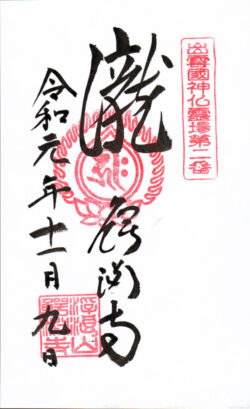 出雲國神仏靈場第二番
瀧
鰐淵寺
令和元年十一月九日
浮浪山
鰐淵寺